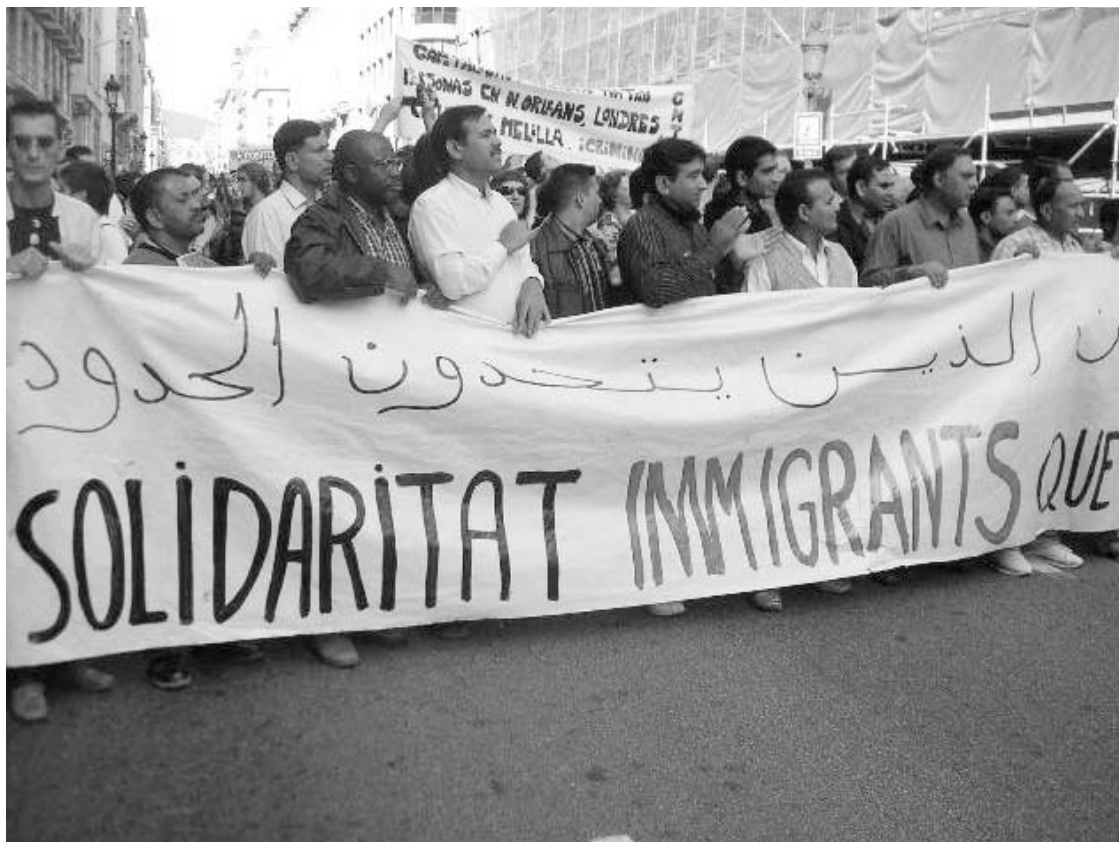 EN N.ORLEANS, LONDRES
MELILLA. ¡CRIMIN
CNT
ن الذيــن يتـحدون الحدود
SOLIDARITAT IMMIGRANTS QUE